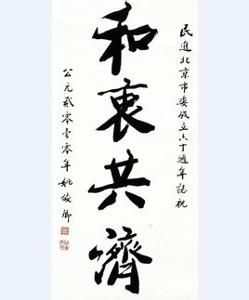 民进北京市委成立六十週年誌祝
和衷共濟
公元贰零壹零年姚俊卿